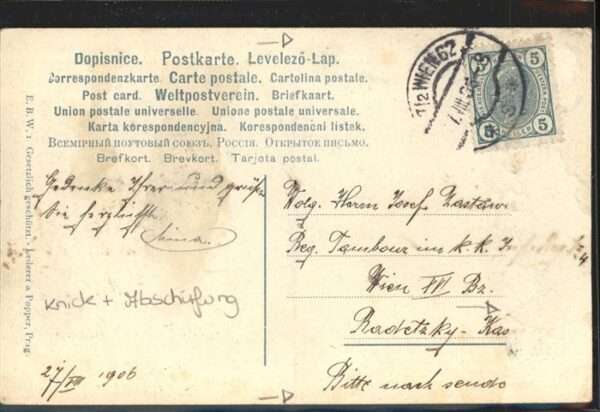 Dopisnice. Postkarte. Levelező-Lap.
Correspondenzkarte. Carte postale. Cartolina postale.
Post card. Weltpostverein. Briefkaart.
Union postale universelle. Unione postale universale.
Karta korespondencyjna. Korespondenčni listek.
Всемірный почтовый союзъ. Россія. Открытое письмо.
Brefkort. Brevkort. Tarjota postal.
Gedenke Ihrer und grüße
Sie herzlichst
Knick + Abschürfung
27/VII 1906
E. B. W. 1 Gesetzlich geschützt - Lederer & Popper, Prag.
1/2 WIEN 62
5 5
5 5
Wolg. Herrn Josef
Reg. Tambour im k. k. J.
4
Wien XV Bz.
Radetzky-Kas
Bitte nach